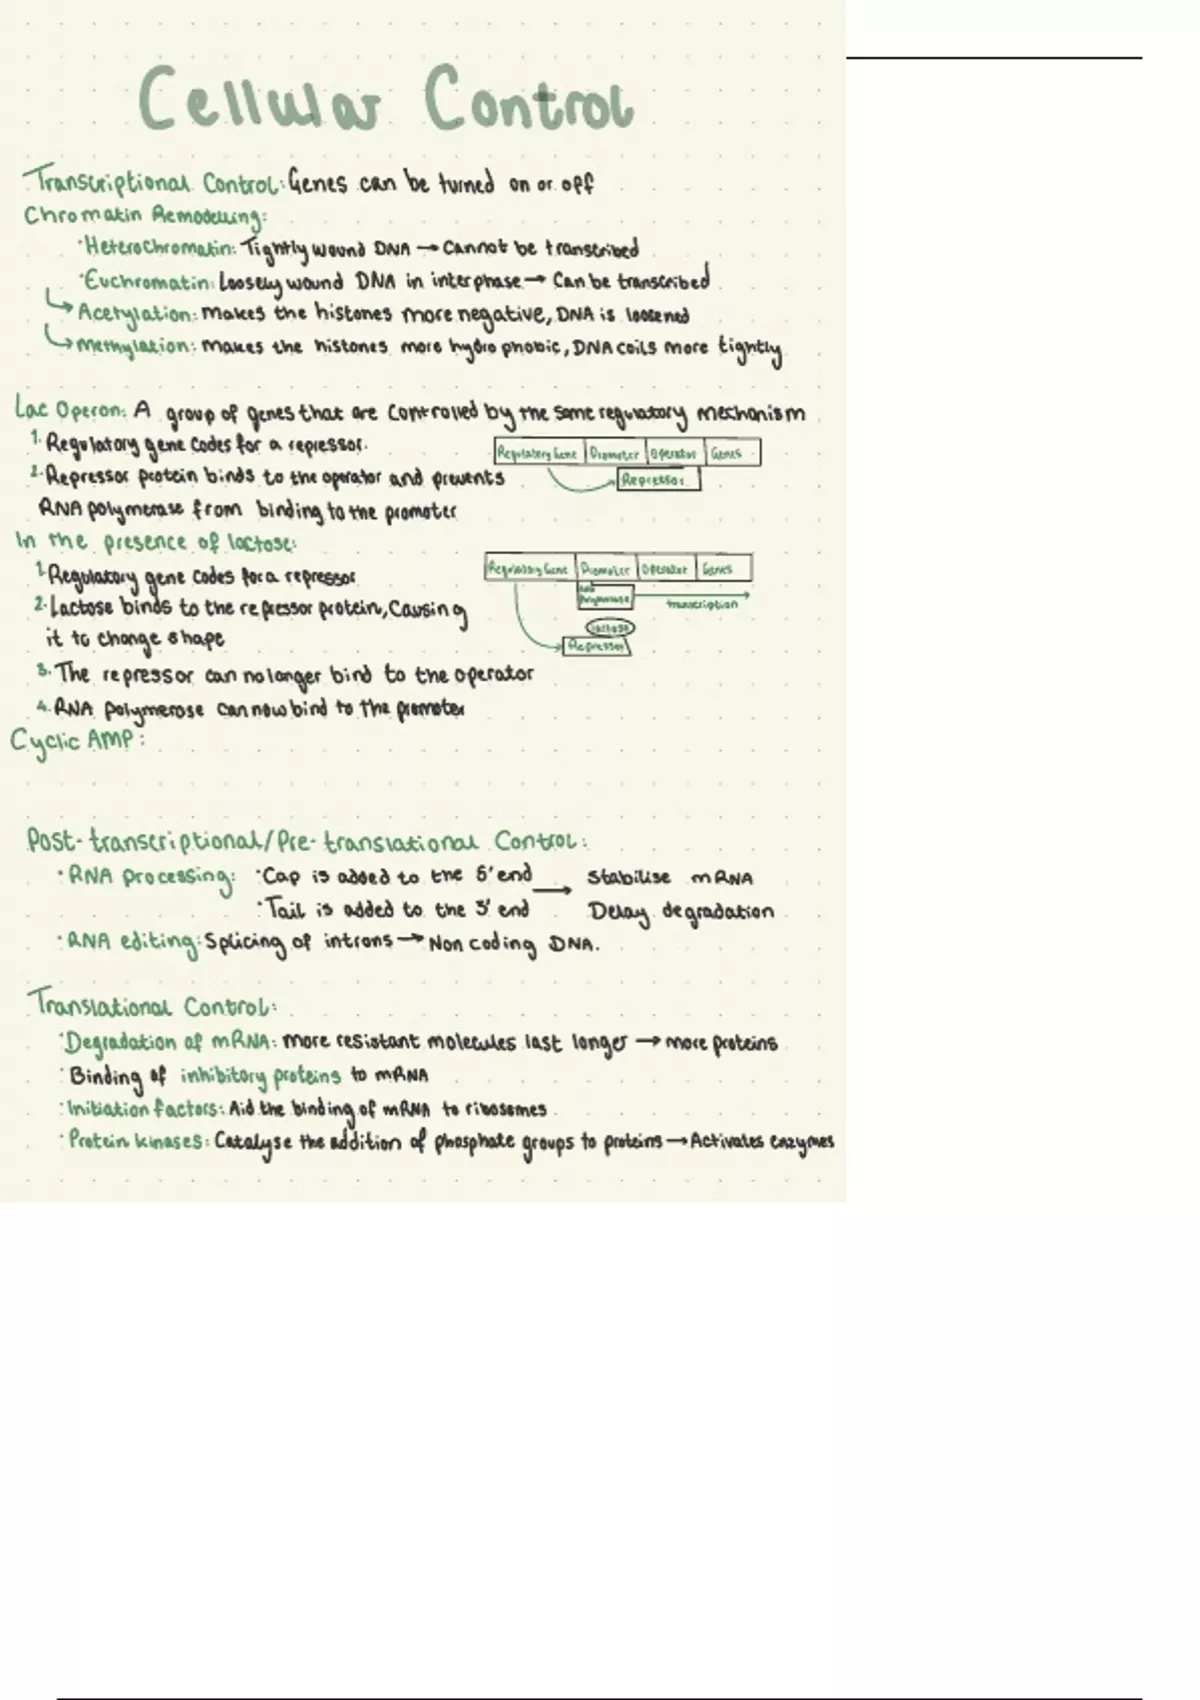 Cellular Control
Transcriptional Control: Genes can be turned on or off
Chromatin Remodelling:
·Heterochromatin: Tightly wound DNA → Cannot be transcribed
·Euchromatin: Loosely wound DNA in interphase → Can be transcribed
↳ Acetylation: makes the histones more negative, DNA is loosened
↳ Methylation: makes the histones more hydrophobic, DNA coils more tightly
Lac Operon: A group of genes that are controlled by the same regulatory mechanism
1. Regulatory gene codes for a repressor.
Regulatory Gene Promoter Operator Genes
2. Repressor protein binds to the operator and prevents
Repressor
RNA polymerase from binding to the promoter
In the presence of lactose:
1. Regulatory gene codes for a repressor
Regulatory Gene Promoter Operator Genes
2. Lactose binds to the repressor protein, Causing
RNA Polymerase transcription
it to change shape
lactose
Repressor
3. The repressor can no longer bind to the operator
4. RNA Polymerase can now bind to the promoter
Cyclic AMP:
Post-transcriptional/Pre-translational Control:
·RNA processing: ·Cap is added to the 5' end → Stabilise mRNA
·Tail is added to the 3' end Delay degradation
·RNA editing: Splicing of introns → Non coding DNA.
Translational Control:
·Degradation of mRNA: more resistant molecules last longer → more proteins
·Binding of inhibitory proteins to mRNA
·Initiation factors: Aid the binding of mRNA to ribosomes
·Protein kinases: Catalyse the addition of phosphate groups to proteins → Activates enzymes